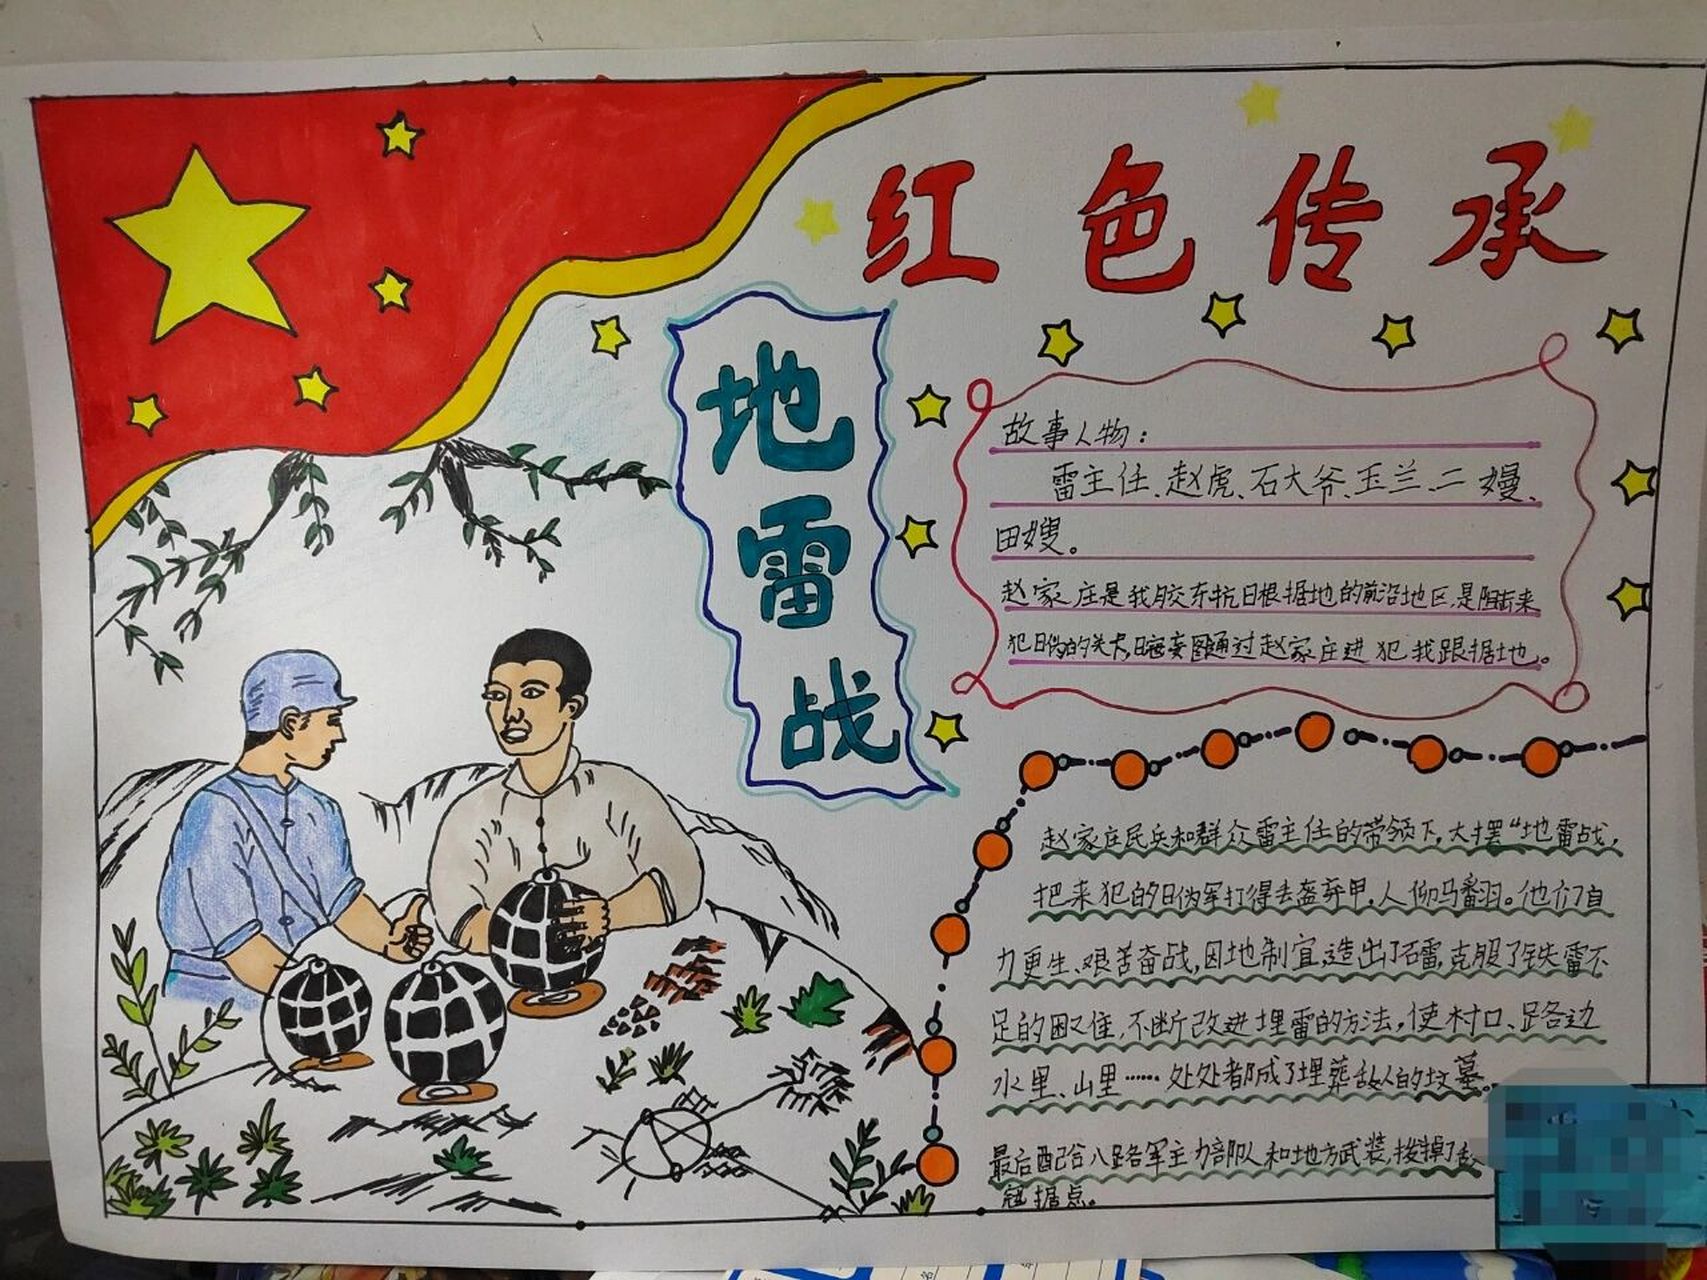 红色传承
地雷战
故事人物：
雷主任、赵虎、石大爷、玉兰、二嫚、
田嫂。
赵家庄是我胶东抗日根据地的前沿地区,是阻击来
犯日伪的关卡,日寇妄图通过赵家庄进犯我跟据地。
赵家庄民兵和群众雷主任的带领下,大摆“地雷战,
把来犯的日伪军打得丢盔弃甲,人仰马翻。他们自
力更生、艰苦奋战,因地制宜,造出了石雷,克服了铁雷不
足的困难,不断改进埋雷的方法,使村口、路边
水里、山里……处处都成了埋葬敌人的坟墓。
最后配合八路军主力部队和地方武装,拔掉了敌
冠据点。